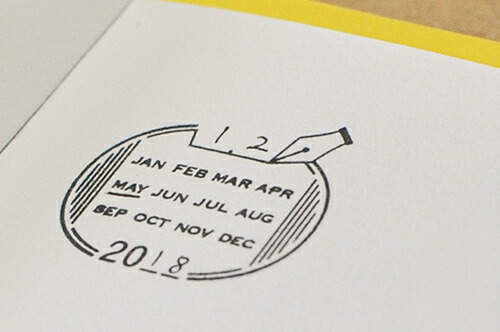 1.2
JAN FEB MAR APR
MAY JUN JUL AUG
SEP OCT NOV DEC
2018